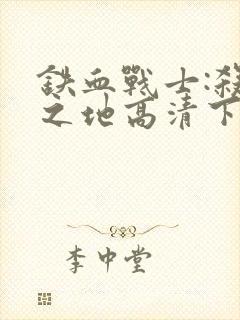 鉄血戰士:殺
之地高清下
李中堂